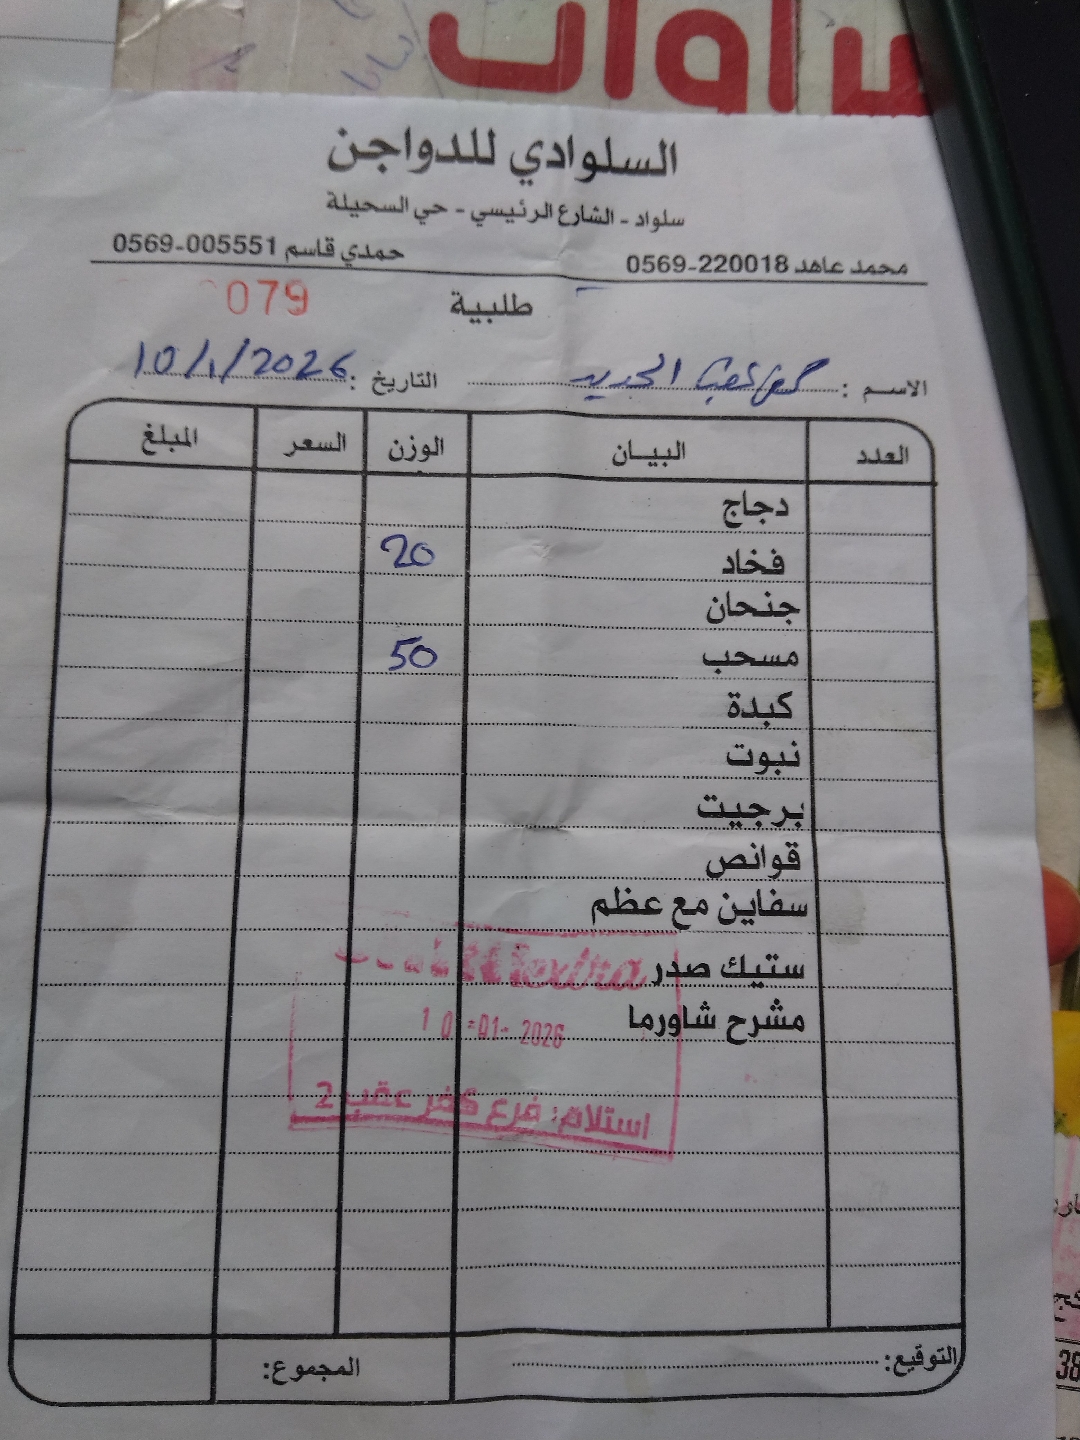 السلوادي للدواجن
سلواد - الشارع الرئيسي - حي السحيلة
محمد عاهد 0569-220018 حمدي قاسم 0569-005551
طلبية 079
الاسم : كفر عقب الجديد التاريخ : 10/1/2026
العدد البيـان الوزن السعر المبلغ
دجاج
فخاد 20
جنحان
مسحب 50
كبدة
نبوت
برجيت
قوانص
سفاين مع عظم
ستيك صدر
مشرح شاورما
10-01-2026
استلام: فرع كفر عقب 2
التوقيع: المجموع:
38